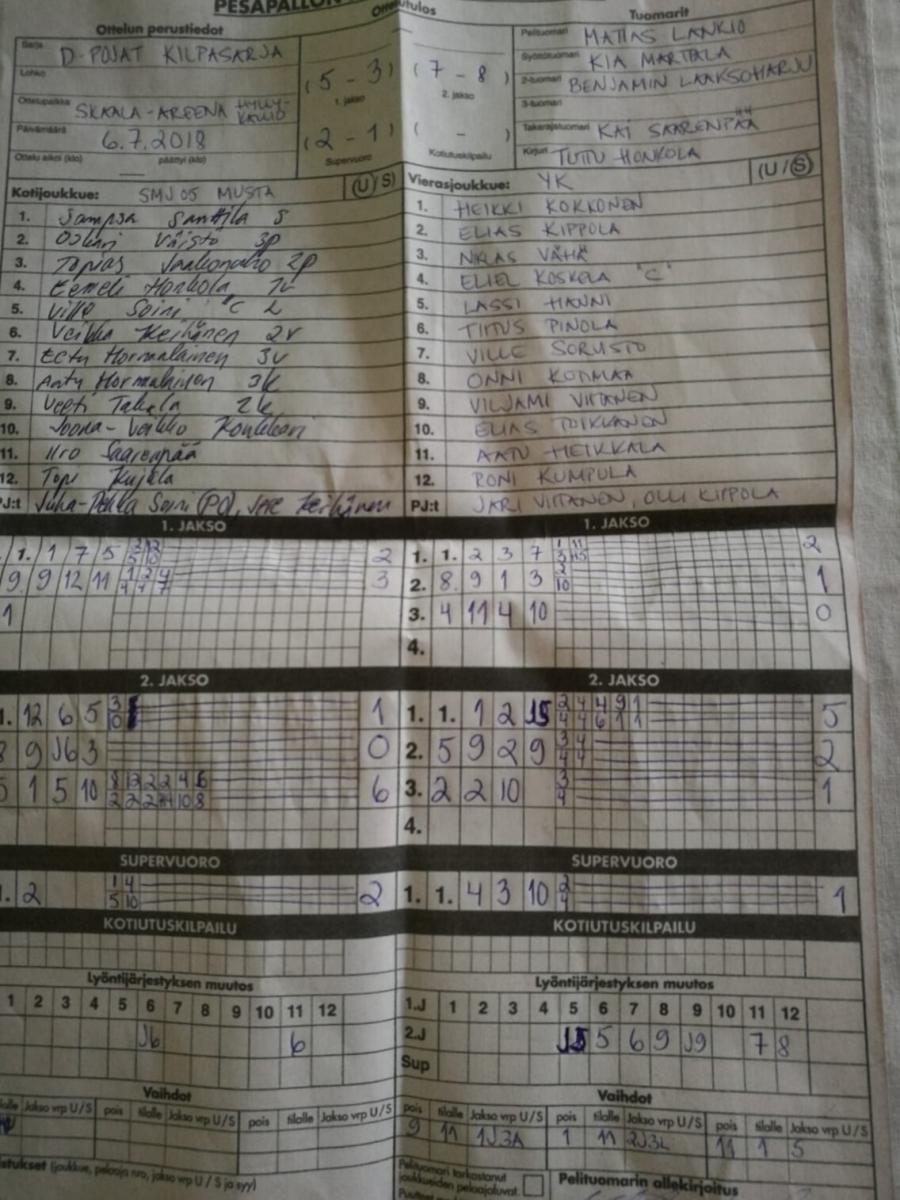 PESÄPALLON
Ottelutulos
Ottelun perustiedot
Tuomarit
Sarja D-POJAT KILPASARJA
Lohko
Ottelupaikka SKAALA-AREENA HYLLY-KALLIO
Päivämäärä 6.7.2018
Ottelu alkoi (klo) päättyi (klo)
(5 - 3) (7 - 8)
1. jakso 2. jakso
(2 - 1) ( - )
Supervuoro Kotiutuskilpailu
Pelituomari MATIAS LANKIO
Syöttötuomari KIA MARTTALA
2-tuomari BENJAMIN LAAKSOHARJU
3-tuomari
Takarajatuomari KAI SAARENPÄÄ
Kirjuri TUTTU HONKOLA
Kotijoukkue: SMJ 05 MUSTA (U/S)
1. Sampsa Santtila S
2. Oskari Väistö 3p
3. Topias Jaakonaho 2p
4. Eemeli Honkola 1v
5. Ville Soini "C L
6. Veikka Keihänen 2v
7. Eetu Hormalainen 3v
8. Anty Hormalainen 3k
9. Veeti Takala 2k
10. Joona-Veikko Konkkari
11. Iiro Saarenpää
12. Topi Kujala
PJ:t Juha-Pekka Soini (PO), Jere Keihänen
Vierasjoukkue: YK (U/S)
1. HEIKKI KOKKONEN
2. ELIAS KIPPOLA
3. NIILAS VÄHÄ
4. ELIEL KOSKELA "C"
5. LASSI HANNI
6. TIITUS PINOLA
7. VILLE SORUSTO
8. ONNI KOTMAA
9. VILJAMI VIITANEN
10. ELIAS TOIKKANEN
11. AATU HEIKKALA
12. RONI KUMPULA
PJ:t JARI VIITANEN, OLLI KIPPOLA
1. JAKSO 1. JAKSO
1. 1 7 5 2
9 9 12 11 1 2 4 3
4 4 7
1
1. 1. 2 3 7 1 11 2
2. 8 9 1 3 2 1
10
3. 4 11 4 10 0
4.
2. JAKSO 2. JAKSO
1. 12 6 5 3 1
10
9 J6 3 0
5 1 5 10 6
1. 1. 1 2 J5 2 4 4 9 1 5
4 4 6 1 1
2. 5 9 2 9 3 4 2
4 4
3. 2 2 10 3 1
4
4.
SUPERVUORO SUPERVUORO
1. 2 1 4 2
5 10
1. 1. 4 3 10 2 1
4
KOTIUTUSKILPAILU KOTIUTUSKILPAILU
Lyöntijärjestyksen muutos Lyöntijärjestyksen muutos
1 2 3 4 5 6 7 8 9 10 11 12
J6 6
1.J 1 2 3 4 5 6 7 8 9 10 11 12
2.J J5 5 6 9 J9 7 8
Sup
Vaihdot Vaihdot
tilalle Jakso vrp U/S pois tilalle Jakso vrp U/S pois tilalle Jakso vrp U/S
pois tilalle Jakso vrp U/S pois tilalle Jakso vrp U/S pois tilalle Jakso vrp U/S
9 11 1J3A 1 11 2J3L 11 1 S
(joukkue, pelaaja nro, jakso vrp U / S ja syy)
Pelituomari tarkastanut
joukkueiden pelaajaluvat.
Pelituomarin allekirjoitus